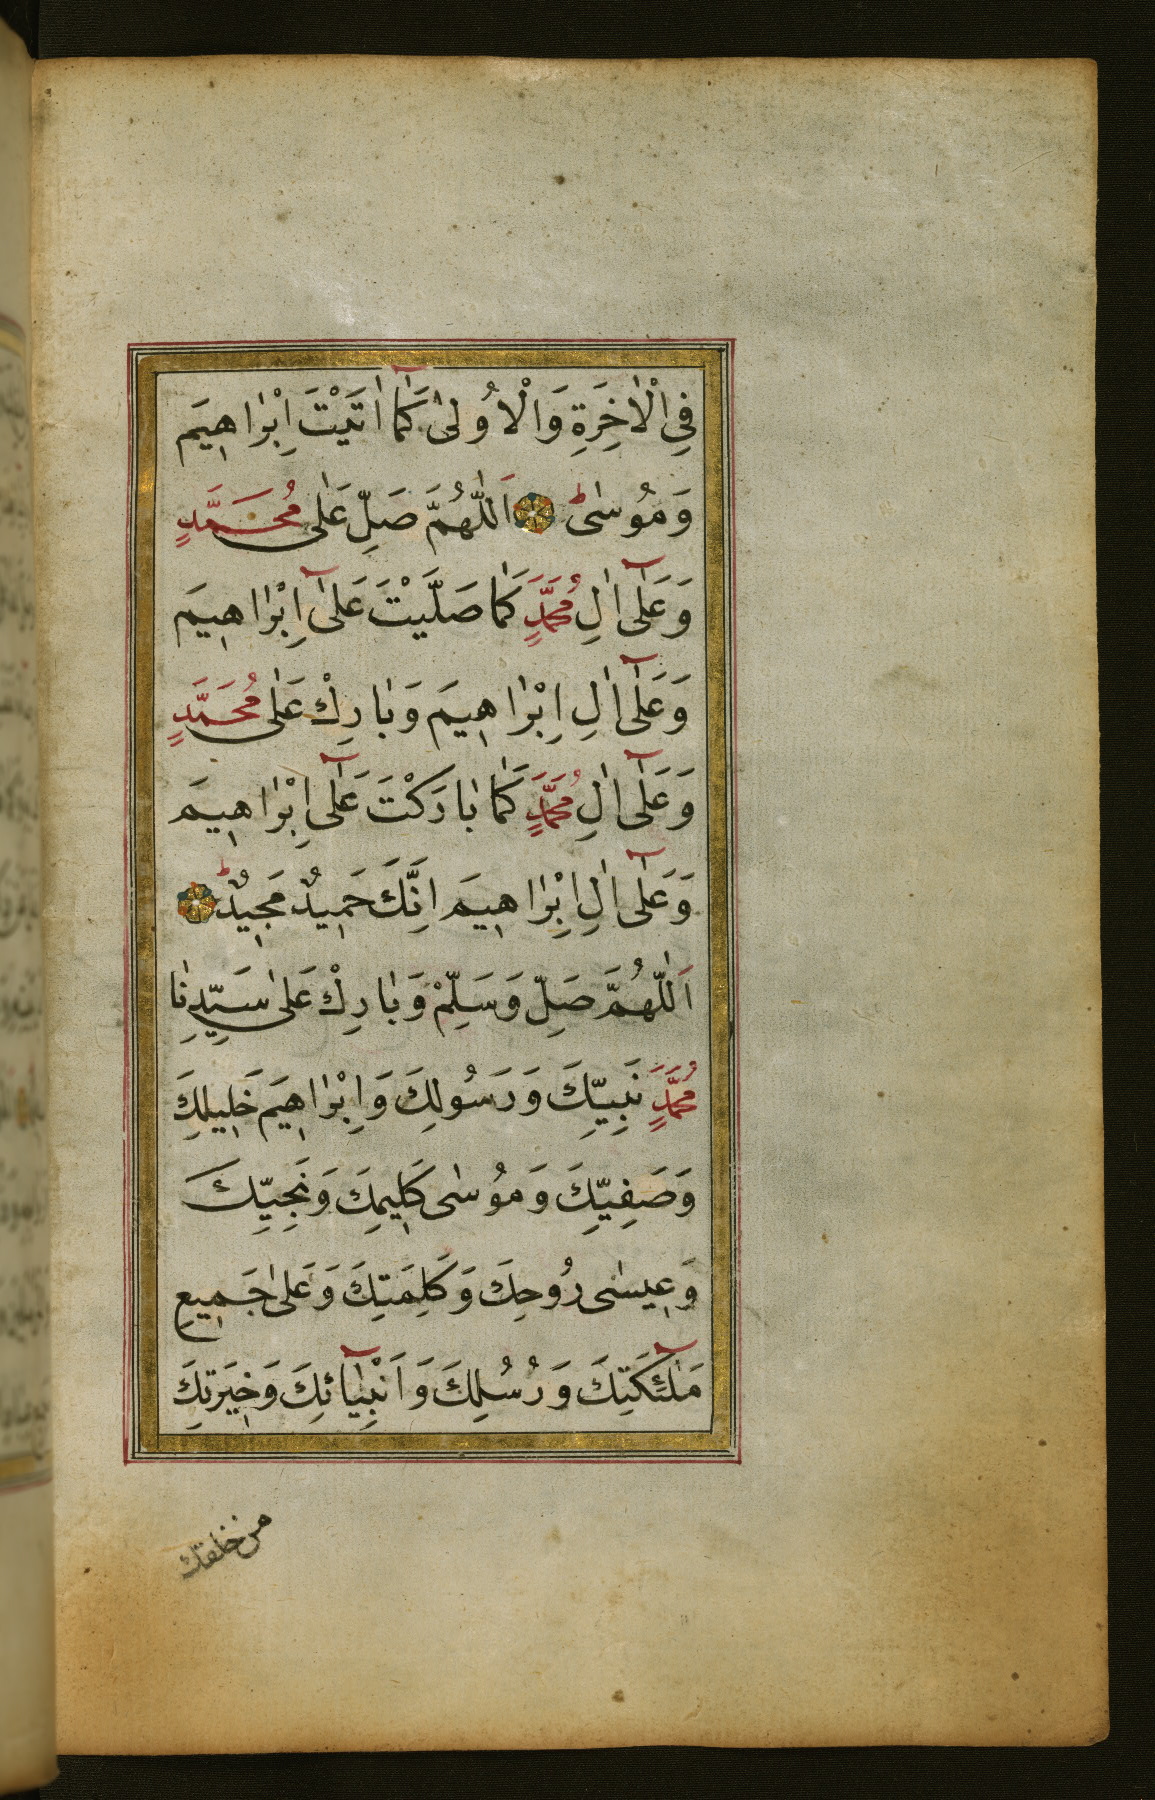 فِي الْاٰخِرَةِ وَالْاُولىٰ كَمَٓا اٰتَيْتَ اِبْرٰاهِيمَ
وَمُوسٰى اَللّٰهُمَّ صَلِّ عَلٰى مُحَمَّدٍ
وَعَلٰٓى اٰلِ مُحَمَّدٍ كَمٰا صَلَّيْتَ عَلٰٓى اِبْرٰاهِيمَ
وَعَلٰٓى اٰلِ اِبْرٰاهِيمَ وَبٰارِكْ عَلٰى مُحَمَّدٍ
وَعَلٰٓى اٰلِ مُحَمَّدٍ كَمٰا بٰارَكْتَ عَلٰٓى اِبْرٰاهِيمَ
وَعَلٰٓى اٰلِ اِبْرٰاهِيمَ اِنَّكَ حَمِيدٌ مَجِيدٌ
اَللّٰهُمَّ صَلِّ وَسَلِّمْ وَبٰارِكْ عَلىٰ سَيِّدِنٰا
مُحَمَّدٍ نَبِيِّكَ وَرَسُولِكَ وَاِبْرٰاهِيمَ خَلِيلِكَ
وَصَفِيِّكَ وَمُوسٰى كَلِيمِكَ وَنَجِيِّكَ
وَعِيسٰى رُوحِكَ وَكَلِمَتِكَ وَعَلىٰ جَمِيعِ
مَلٰٓئِكَتِكَ وَرُسُلِكَ وَاَنْبِيٰٓائِكَ وَخِيَرَتِكَ
من خلقك